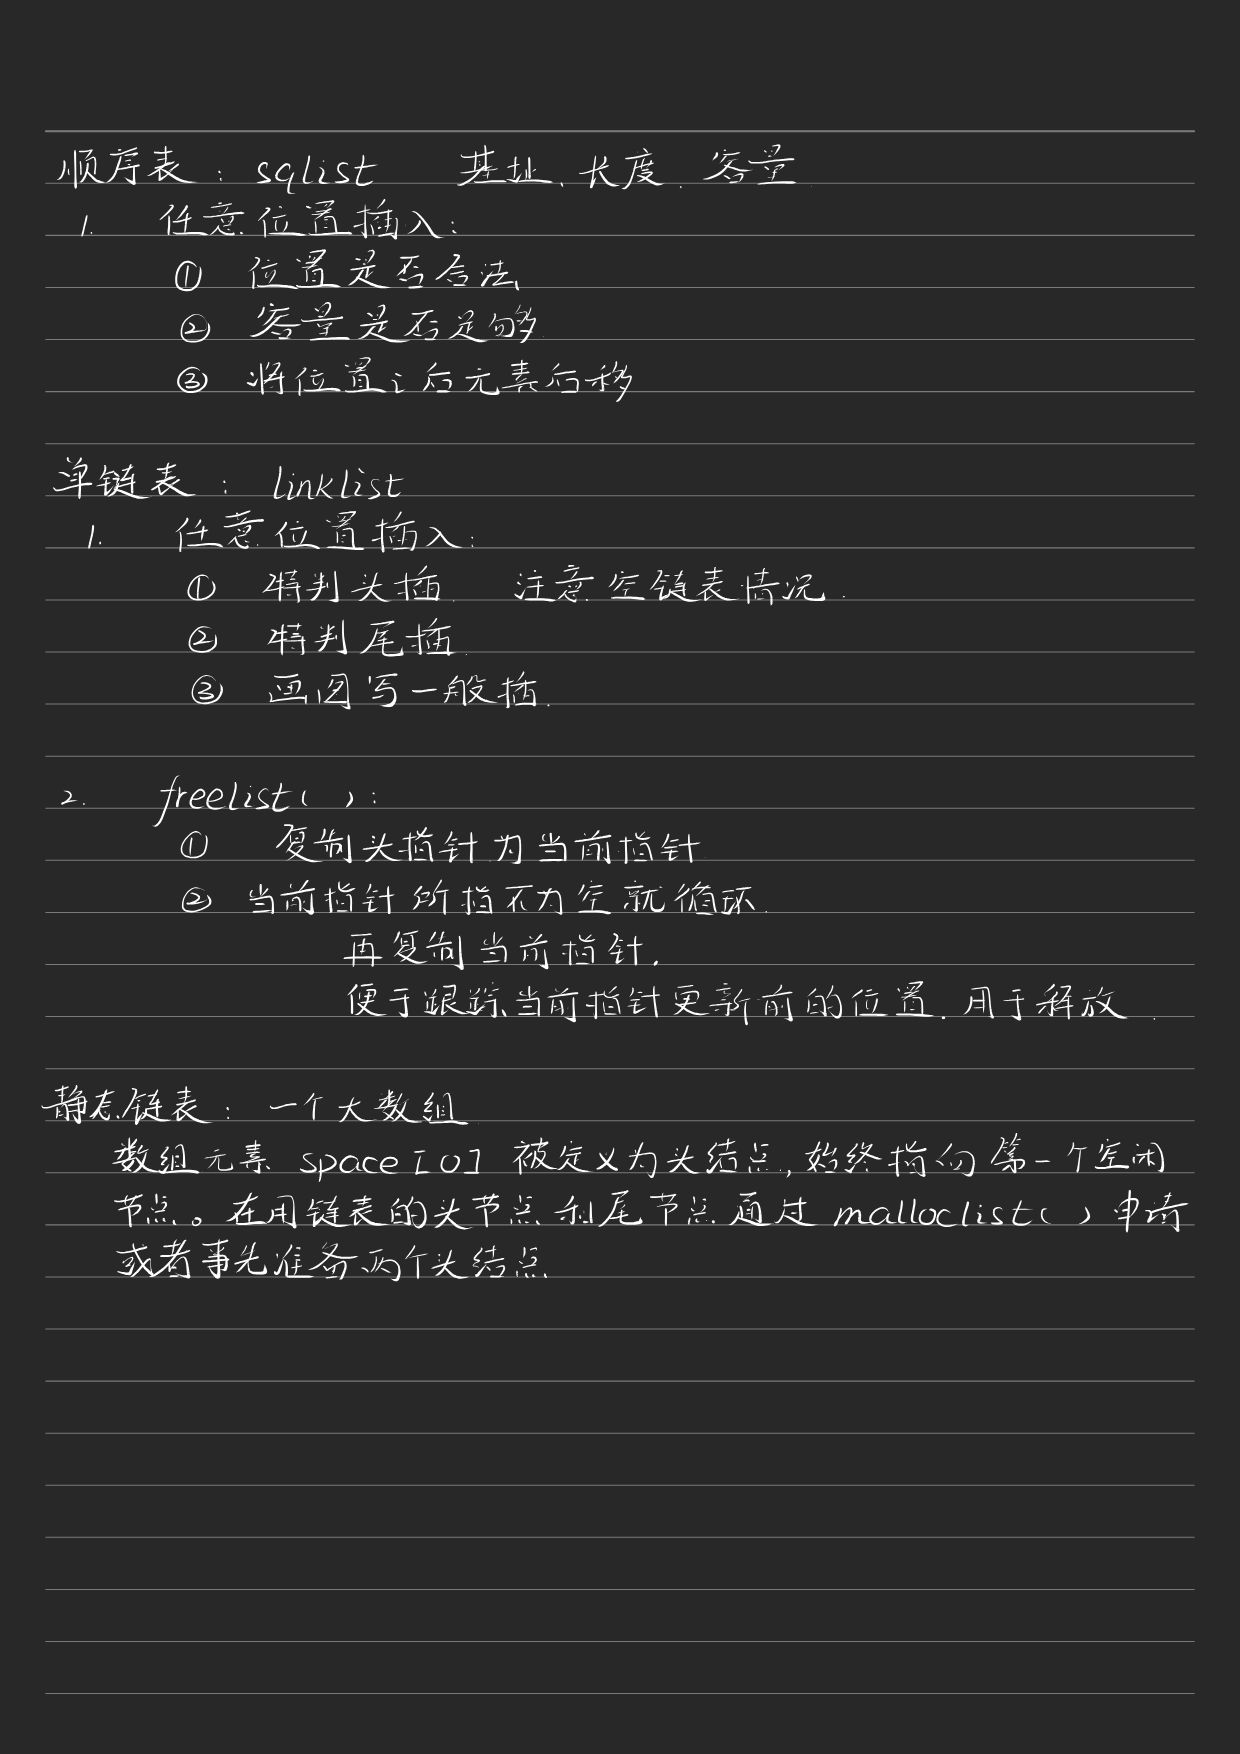 顺序表： sqlist 基址、长度、容量
1. 任意位置插入：
① 位置是否合法
② 容量是否足够
③ 将位置i后元素后移
单链表： linklist
1. 任意位置插入：
① 特判头插 注意空链表情况.
② 特判尾插.
③ 画图写一般插.
2. freelist( )：
① 复制头指针为当前指针
② 当前指针所指不为空就循环.
再复制当前指针.
便于跟踪当前指针更新前的位置.用于释放.
静态链表：一个大数组
数组元素 space[0] 被定义为头结点,始终指向第一个空闲
节点。在用链表的头节点和尾节点通过 malloclist( ) 申请
或者事先准备两个头结点